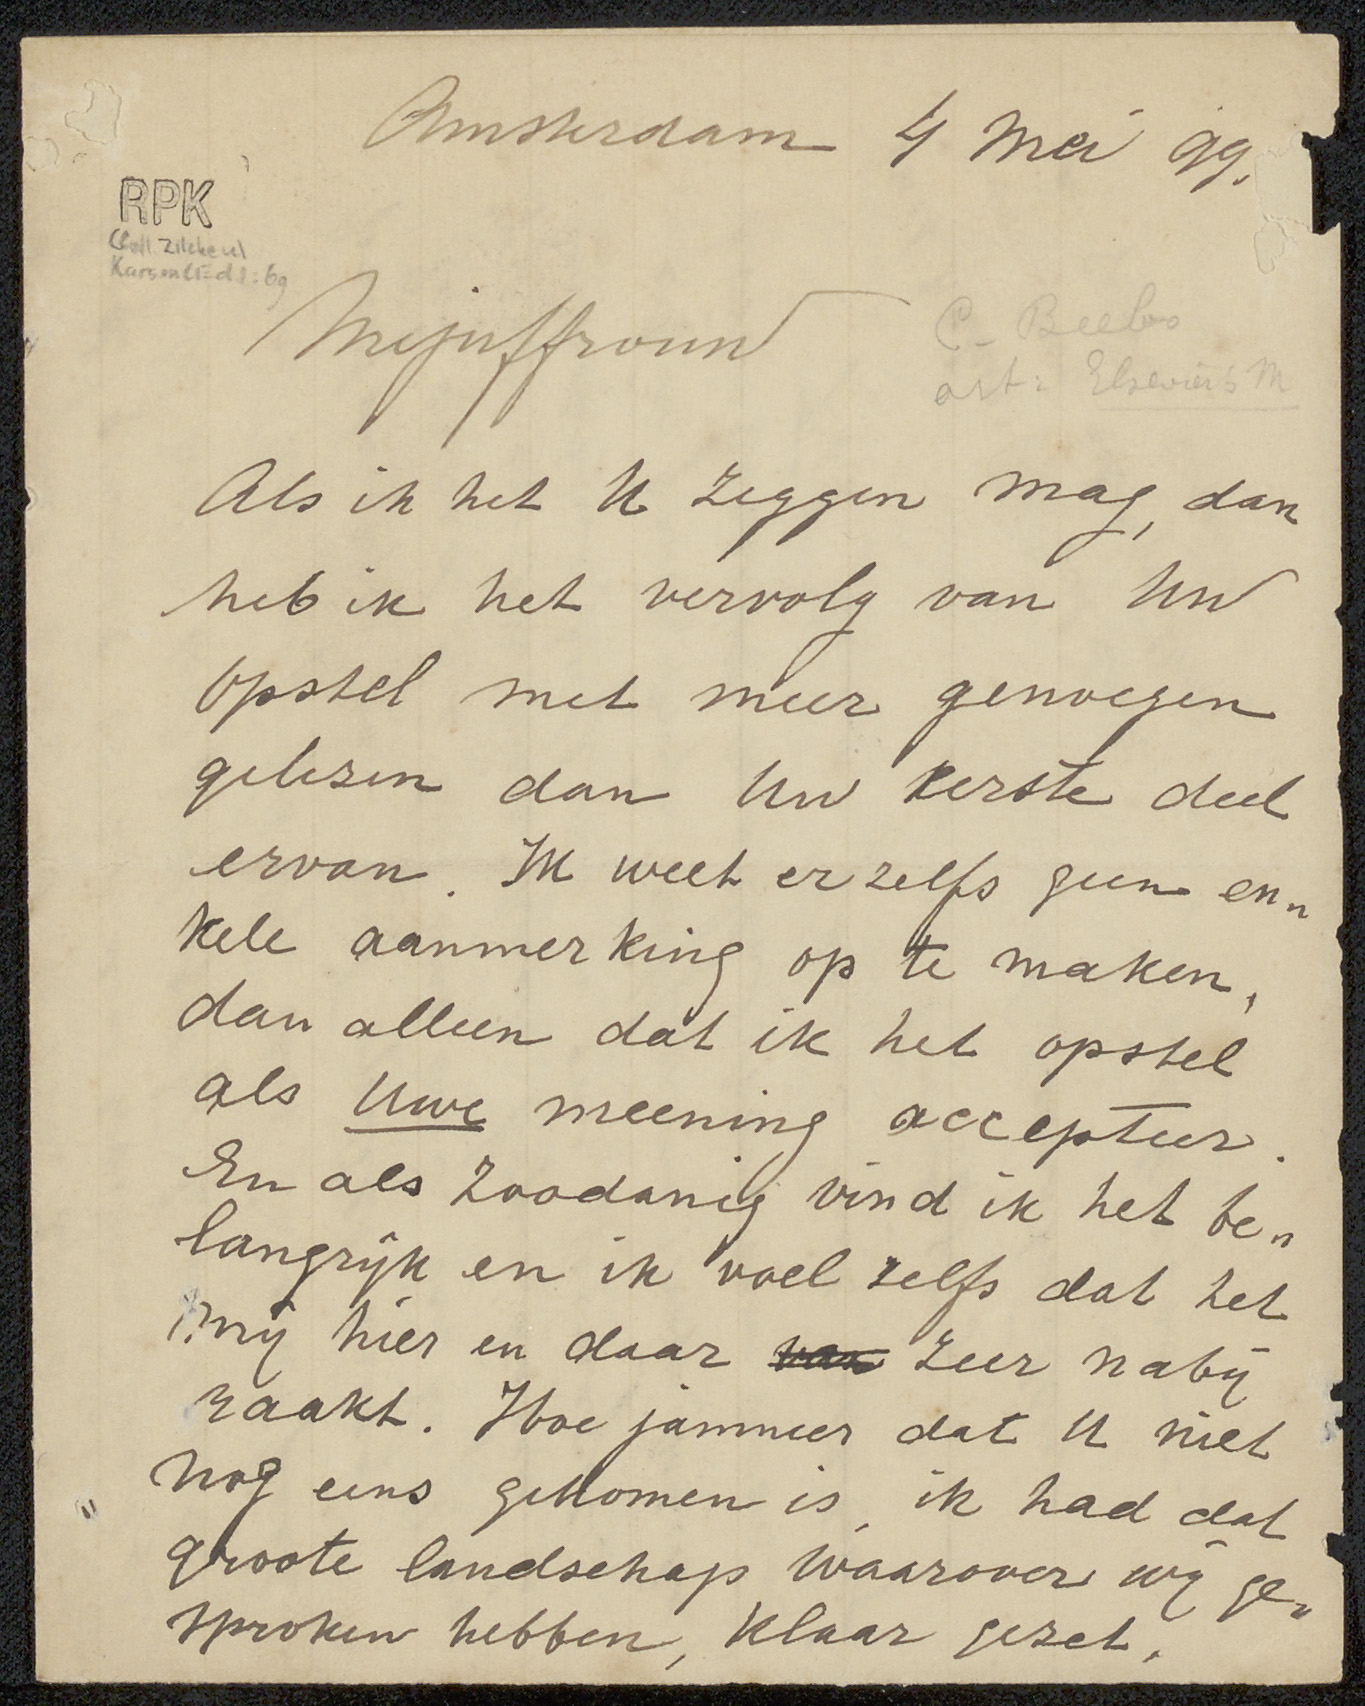 Amsterdam 4 Mei 99.
RPK
Coll. Zilcken
Mejuffrouw
C. Beels
art: Elsevier's M
Als ik het U zeggen mag, dan
heb ik het vervolg van Uw
opstel met meer genoegen
gelezen dan Uw eerste deel
ervan. Ik weet er zelfs geen en„
kele aanmerking op te maken,
dan alleen dat ik het opstel
als Uwe meening accepteer.
En als zoodanig vind ik het be„
langrijk en ik voel zelfs dat het
mij hier en daar van zeer nabij
raakt. Hoe jammer dat U niet
nog eens gekomen is, ik had dat
groote landschap waarover wij ge„
sproken hebben, klaar gezet.